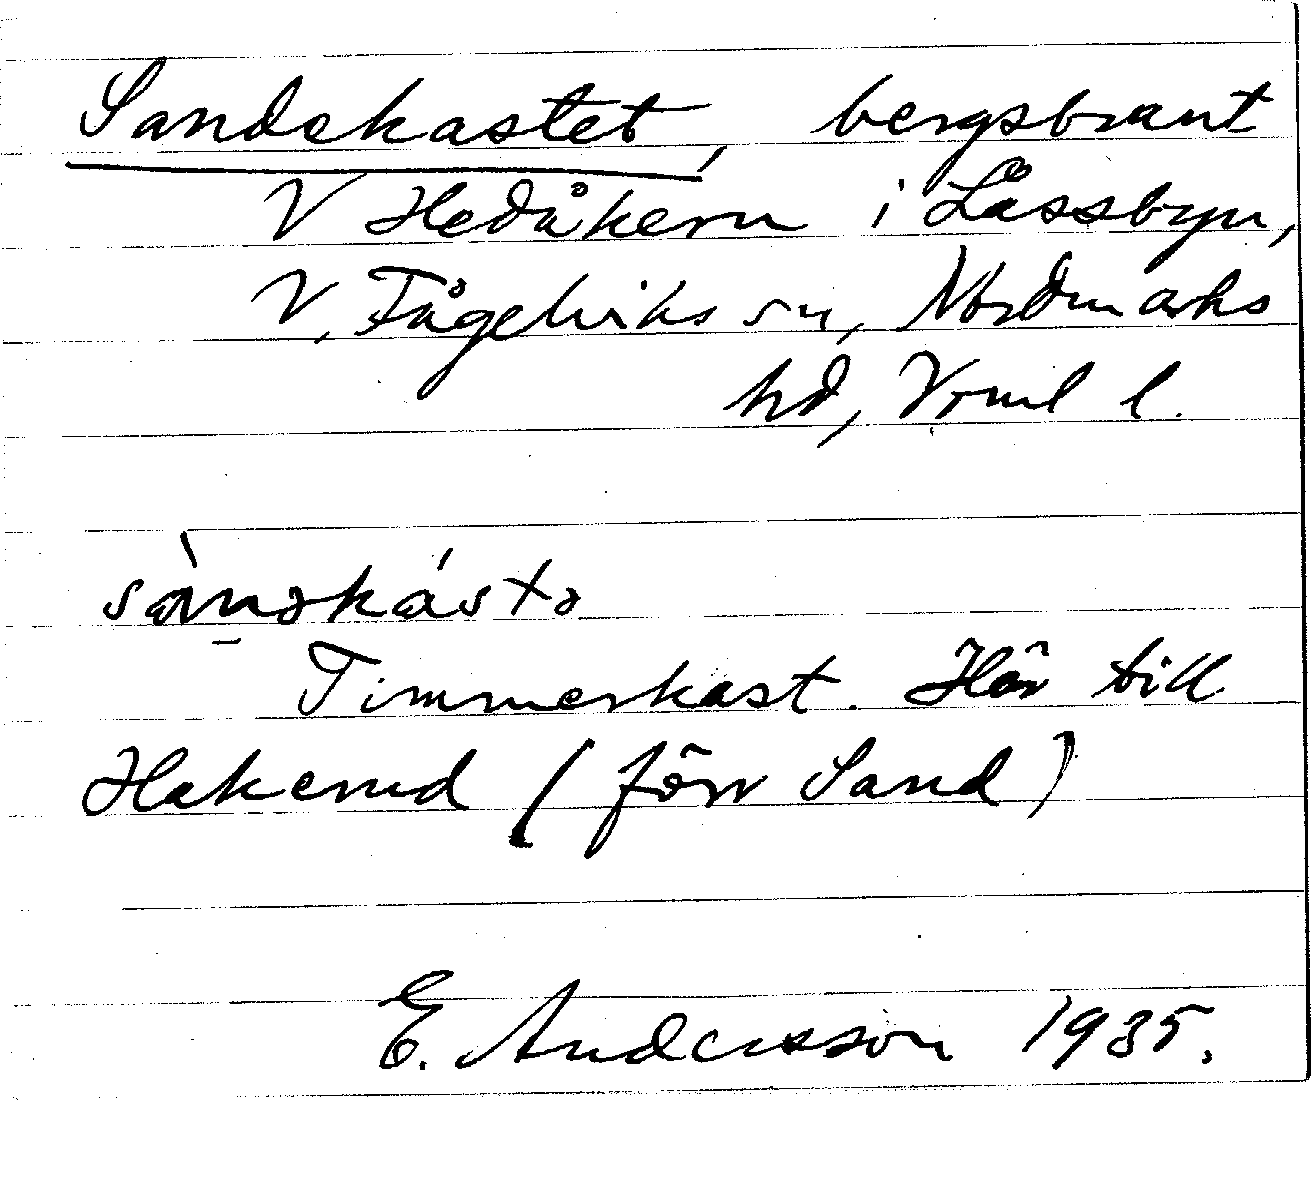 Sandskastet, bergsbrant
V Hedåkern i Låssbyn,
V. Fågelviks sn, Nordmarks
hd, Vrml l.
Timmerkast. Hör till
Hakerud (förr Sand)
E. Andersson 1935.